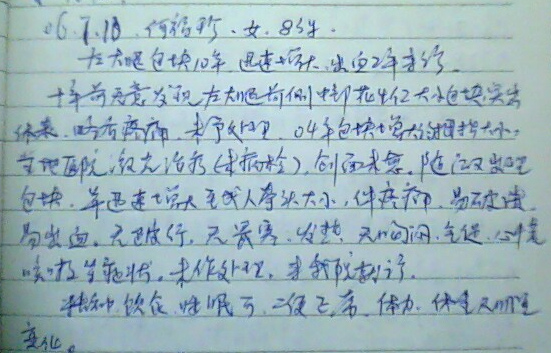 06.7.18. 何 珍. 女. 8 岁.
左大腿包块10年, 迅速增大、出血2年来诊.
十年前无意发现左大腿前侧中部花生仁大小包块突出
体表. 略有疼痛. 未予处理. 04年包块增大 拇指大小.
当地医院激光治疗(未病检), 创面未愈. 随后又出现
包块. 并迅速增大至成人拳头大小, 伴疼痛, 易破溃,
易出血. 无跛行, 无畏寒、发热, 无胸闷、气促、心悸
咳嗽等症状. 未作处理, 来我院就诊.
精神饮食、睡眠可. 二便正常. 体力、体重无明显
变化。